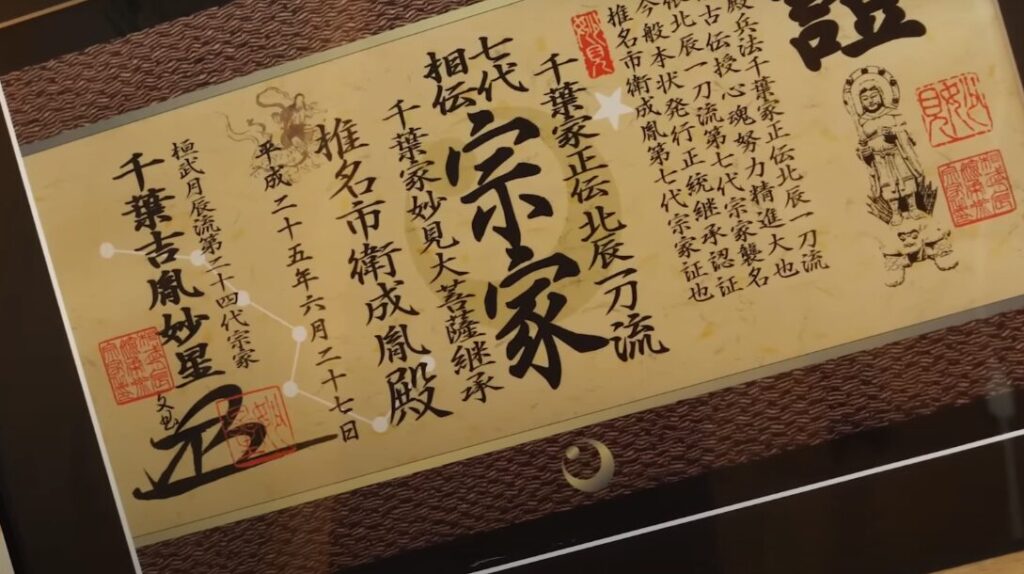 證
殿兵法千葉家正伝北辰一刀流
古伝授心魂努力精進大也
北辰一刀流第七代宗家襲名
今般本状発行正統継承認証
椎名市衛成胤第七代宗家証也
妙見
千葉家正伝北辰一刀流
七代相伝宗家
千葉家妙見大菩薩継承
椎名市衛成胤殿
平成二十五年六月二十七日
桓武月辰流第二十四代宗家
千葉吉胤妙星